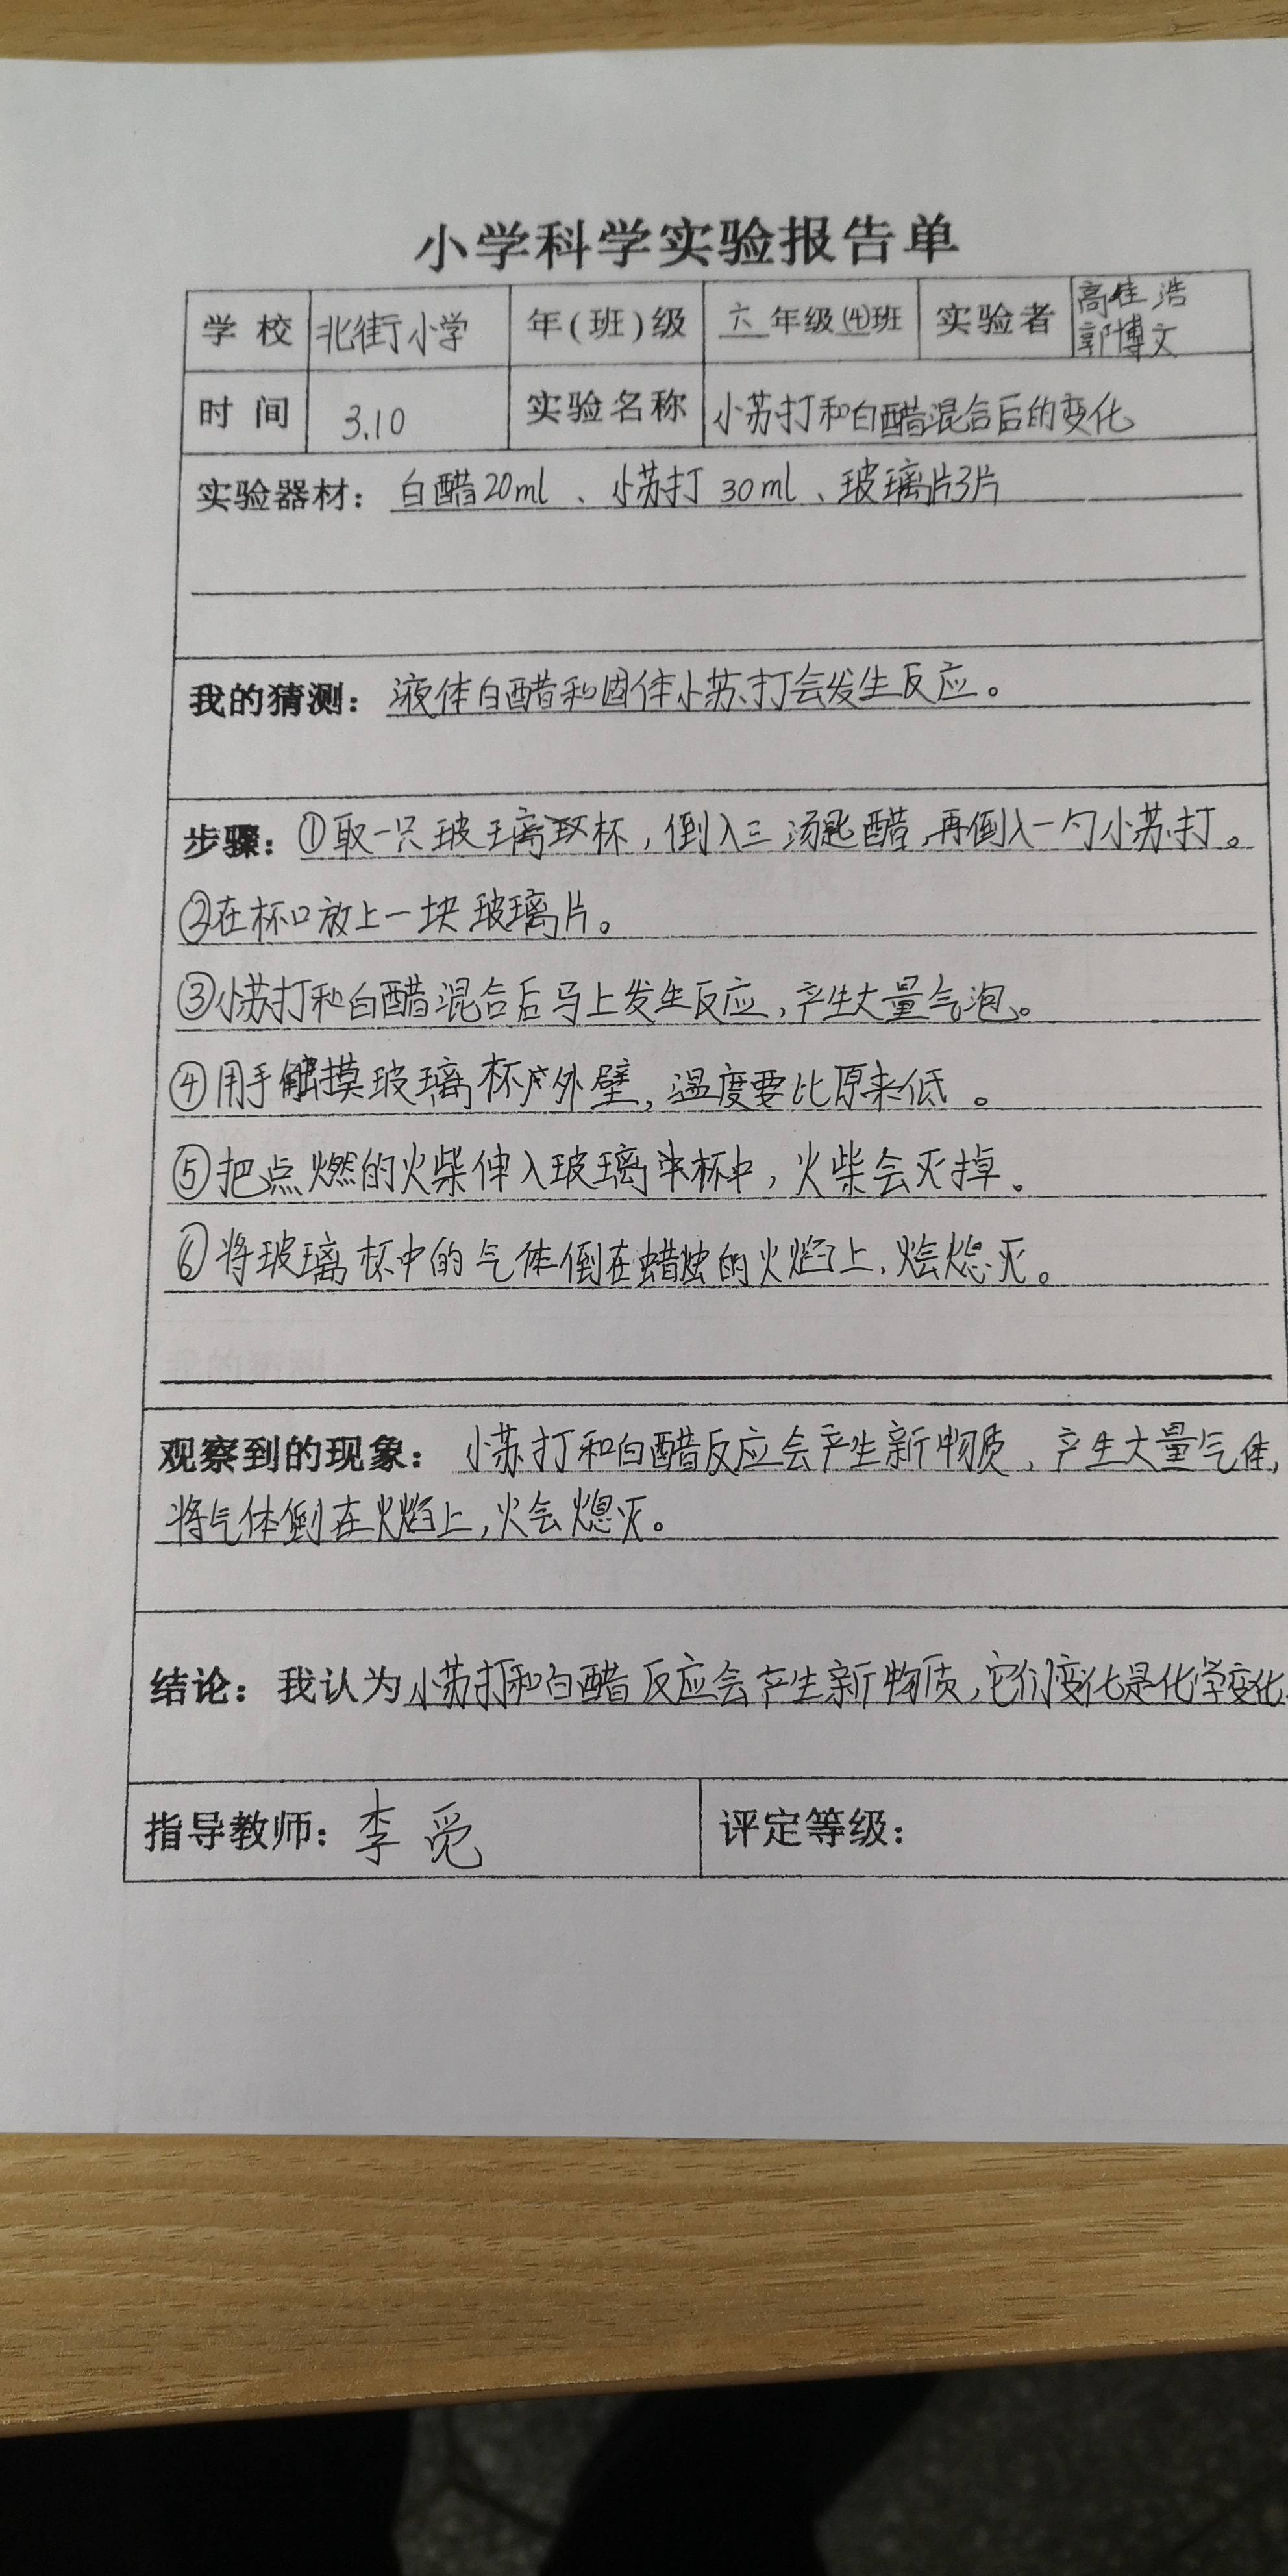 小学科学实验报告单
学校 北街小学 年(班)级 六年级(4)班 实验者 高佳浩 郭博文
时间 3.10 实验名称 小苏打和白醋混合后的变化
实验器材: 白醋20ml、小苏打30ml、玻璃片3片
我的猜测: 液体白醋和固体小苏打会发生反应。
步骤: ①取一只玻璃杯,倒入三汤匙醋,再倒入一勺小苏打。
②在杯口放上一块玻璃片。
③小苏打和白醋混合后马上发生反应,产生大量气泡。
④用手触摸玻璃杯外壁,温度要比原来低。
⑤把点燃的火柴伸入玻璃杯中,火柴会灭掉。
⑥将玻璃杯中的气体倒在蜡烛的火焰上,熄灭。
观察到的现象: 小苏打和白醋反应会产生新物质,产生大量气体,
将气体倒在火焰上,火会熄灭。
结论: 我认为小苏打和白醋反应会产生新物质,它们变化是化学变化
指导教师: 李觅 评定等级: